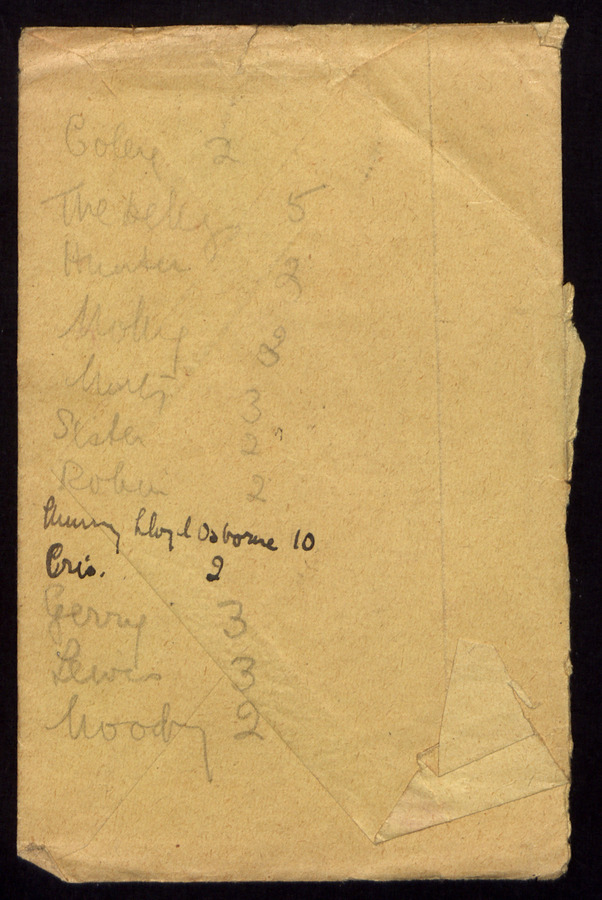 Coley 2
The 5
Hunter 2
Molly 2
3
Sister 2
Robin 2
Murray Lloyd Osborne 10
Cris. 2
Gerry 3
Lewis 3
Moody 2